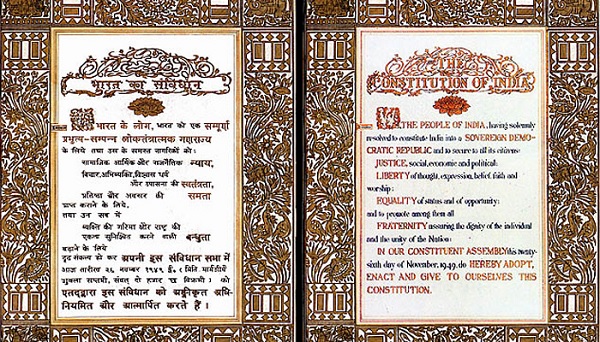 भारत का संविधान
हम भारत के लोग, भारत को एक सम्पूर्ण
प्रभुत्व-सम्पन्न लोकतंत्रात्मक गणराज्य
के लिये तथा उस के समस्त नागरिकों को:
सामाजिक आर्थिक और राजनैतिक न्याय,
विचार, अभिव्यक्ति, विश्वास धर्म
और उपासना की स्वतंत्रता,
प्रतिष्ठा और अवसर की समता
प्राप्त कराने के लिये,
तथा उन सब में
व्यक्ति की गरिमा और राष्ट्र की
एकता सुनिश्चित करने वाली बन्धुता
बढ़ाने के लिये
दृढ़ संकल्प हो कर अपनी इस संविधान सभा में
आज तारीख २६ नवम्बर १९४९ ई. (मिति मार्गशीर्ष
शुक्ला सप्तमी, संवत् दो हजार छ विक्रमी) को
एतद्द्वारा इस संविधान को अङ्गीकृत अधि-
नियमित और आत्मार्पित करते हैं।
THE
CONSTITUTION OF INDIA
WE, THE PEOPLE OF INDIA, having solemnly
resolved to constitute India into a SOVEREIGN DEMO-
CRATIC REPUBLIC and to secure to all its citizens:
JUSTICE, social, economic and political:
LIBERTY of thought, expression, belief, faith and
worship:
EQUALITY of status and of opportunity:
and to promote among them all
FRATERNITY assuring the dignity of the individual
and the unity of the Nation:
IN OUR CONSTITUENT ASSEMBLY this twenty-
sixth day of November, 1949, do HEREBY ADOPT,
ENACT AND GIVE TO OURSELVES THIS
CONSTITUTION.